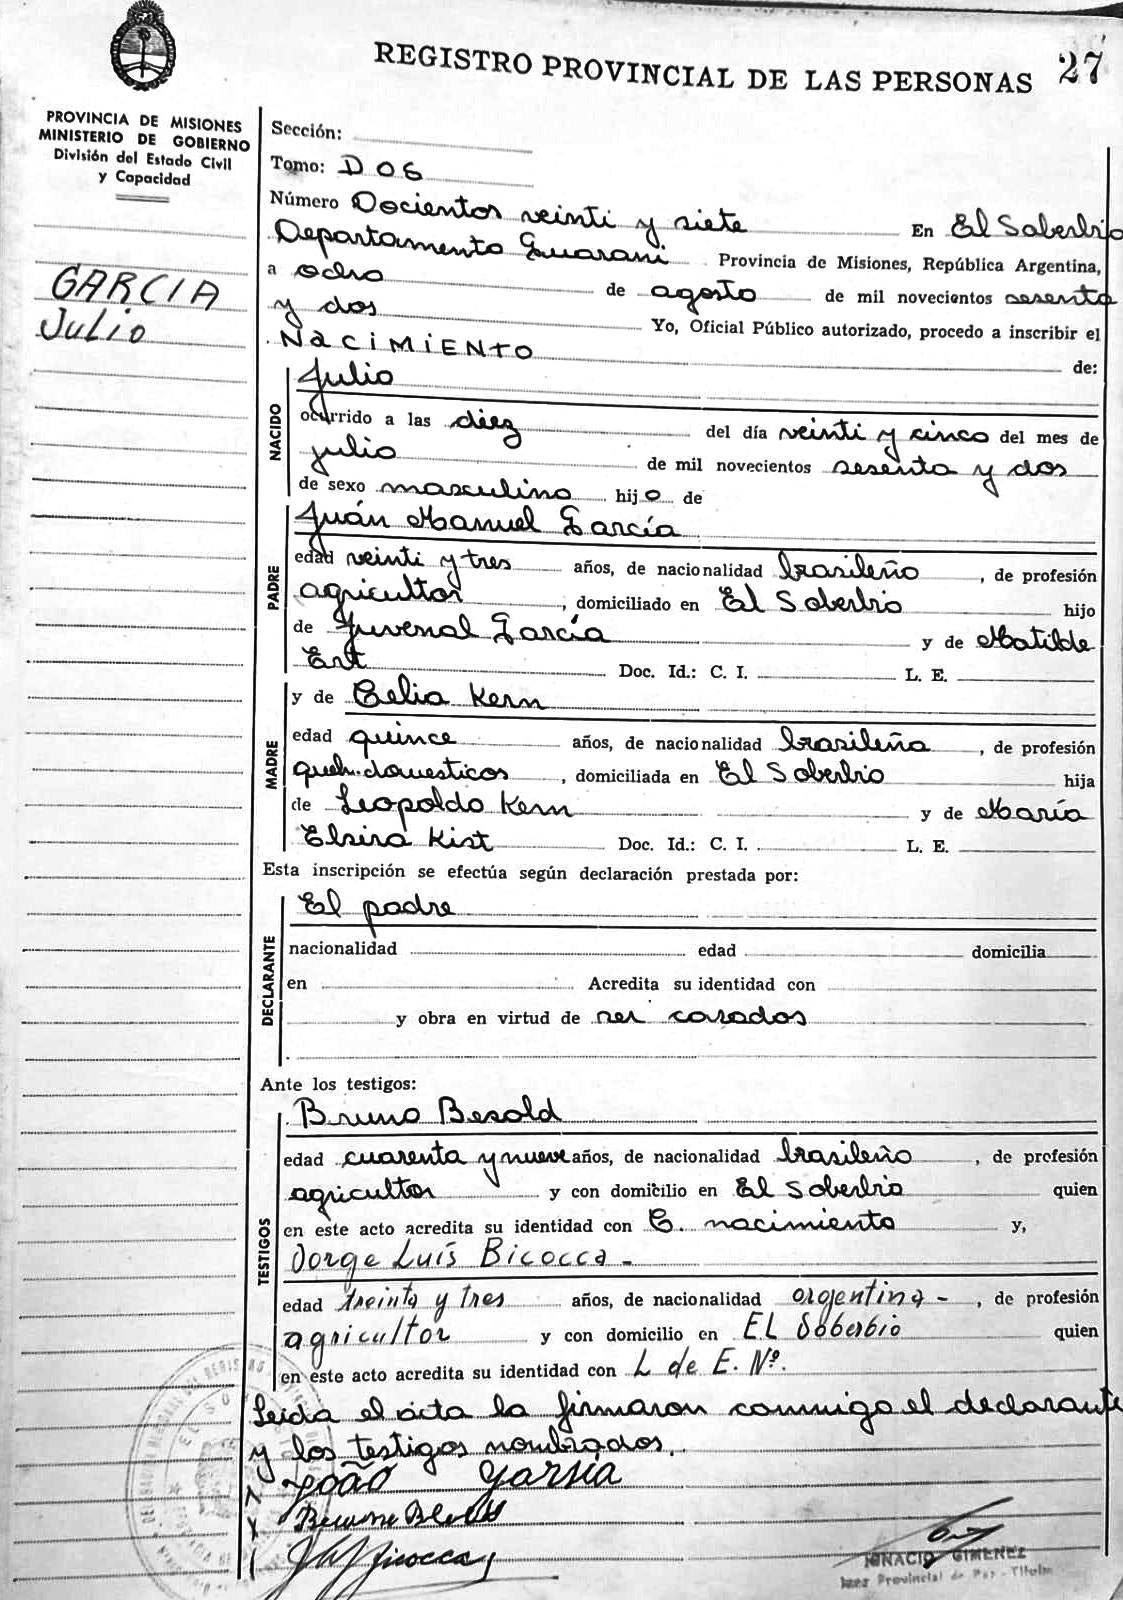 REGISTRO PROVINCIAL DE LAS PERSONAS 27
PROVINCIA DE MISIONES
MINISTERIO DE GOBIERNO
División del Estado Civil
y Capacidad
GARCIA
Julio
Sección:
Tomo: DOS
Número Docientos veinti y siete En El Soberbio
Departamento Guarani Provincia de Misiones, República Argentina,
a ocho de agosto de mil novecientos sesenta
y dos Yo, Oficial Público autorizado, procedo a inscribir el
NACIMIENTO de:
NACIDO
Julio
ocurrido a las diez del día veinti y cinco del mes de
julio de mil novecientos sesenta y dos
de sexo masculino hijo de
PADRE
Juán Manuel García
edad veinti y tres años, de nacionalidad brasileño, de profesión
agricultor, domiciliado en El Soberbio hijo
de Juvenal García y de Matilde
Ert Doc. Id.: C. I. L. E.
MADRE
y de Celia Kern
edad quince años, de nacionalidad brasileña, de profesión
queh. domesticos, domiciliada en El Soberbio hija
de Leopoldo Kern y de María
Elsira Kist Doc. Id.: C. I. L. E.
Esta inscripción se efectúa según declaración prestada por:
DECLARANTE
El padre
nacionalidad edad domicilia
en Acredita su identidad con
y obra en virtud de ser casados
Ante los testigos:
TESTIGOS
Bruno Besold
edad cuarenta y nueve años, de nacionalidad brasileño, de profesión
agricultor y con domicilio en El Soberbio quien
en este acto acredita su identidad con C. nacimiento y,
Jorge Luís Bicocca -
edad treinta y tres años, de nacionalidad argentina -, de profesión
agricultor y con domicilio en EL Soberbio quien
en este acto acredita su identidad con L de E. Nº.
Leida el acta la firmaron conmigo el declarante
y los testigos nombrados.
João Garsia
IGNACIO GIMENEZ
Juez Provincial de Paz - Titular